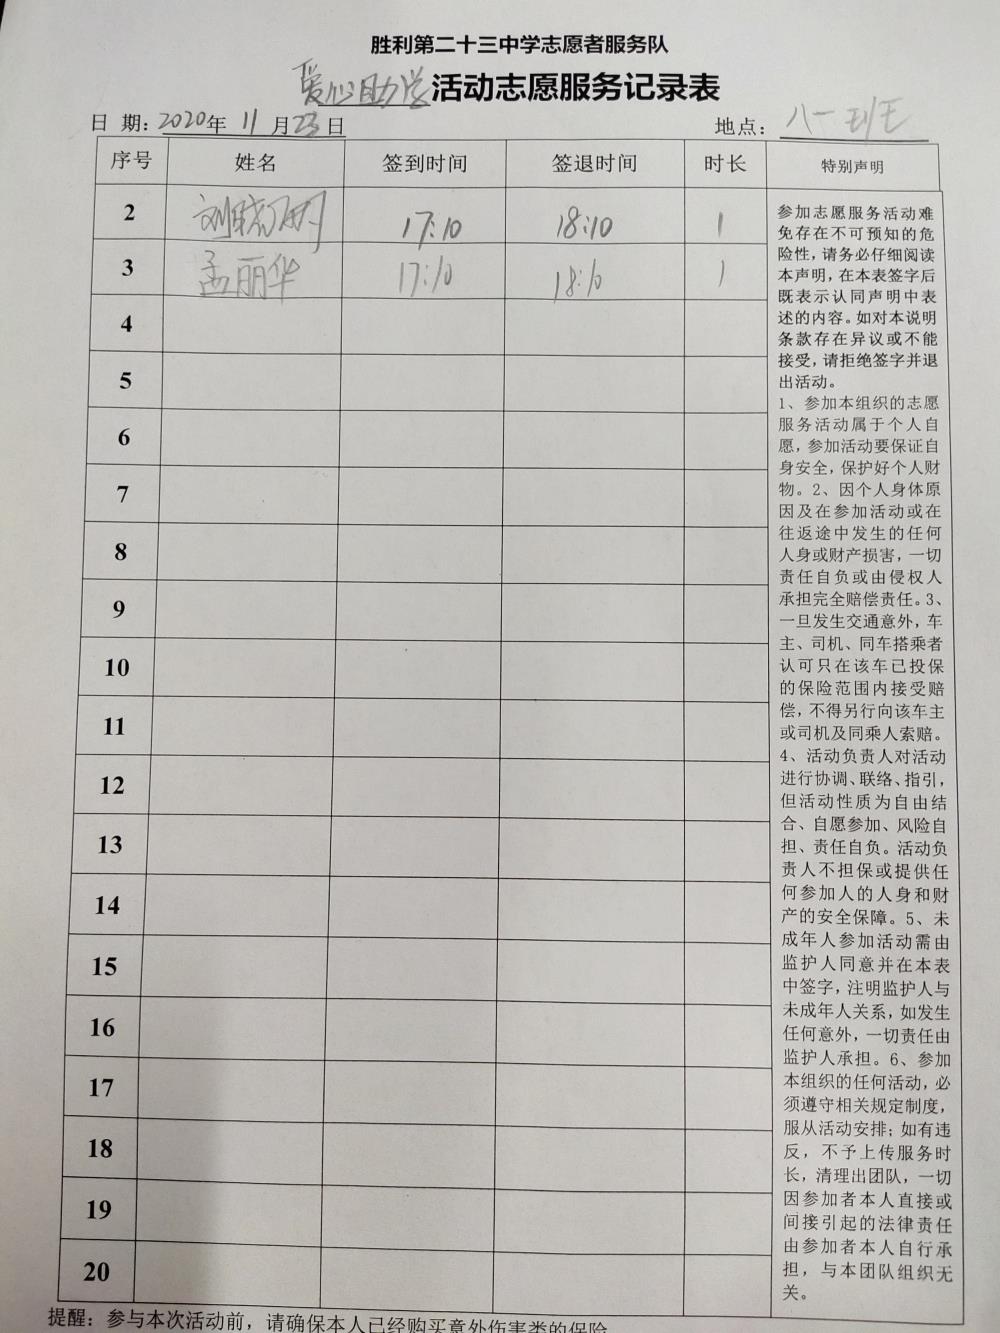 胜利第二十三中学志愿者服务队
爱心助学活动志愿服务记录表
日 期：2020年 11 月23日 地点：八一班
序号 姓名 签到时间 签退时间 时长 特别声明
2 刘晓丽 17:10 18:10 1
3 孟丽华 17:10 18:10 1
4
5
6
7
8
9
10
11
12
13
14
15
16
17
18
19
20
参加志愿服务活动难
免存在不可预知的危
险性，请务必仔细阅读
本声明，在本表签字后
既表示认同声明中表
述的内容。如对本说明
条款存在异议或不能
接受，请拒绝签字并退
出活动。
1、参加本组织的志愿
服务活动属于个人自
愿，参加活动要保证自
身安全，保护好个人财
物。2、因个人身体原
因及在参加活动或在
往返途中发生的任何
人身或财产损害，一切
责任自负或由侵权人
承担完全赔偿责任。3、
一旦发生交通意外，车
主、司机、同车搭乘者
认可只在该车已投保
的保险范围内接受赔
偿，不得另行向该车主
或司机及同乘人索赔。
4、活动负责人对活动
进行协调、联络、指引，
但活动性质为自由结
合、自愿参加、风险自
担、责任自负。活动负
责人不担保或提供任
何参加人的人身和财
产的安全保障。5、未
成年人参加活动需由
监护人同意并在本表
中签字，注明监护人与
未成年人关系，如发生
任何意外，一切责任由
监护人承担。6、参加
本组织的任何活动，必
须遵守相关规定制度，
服从活动安排；如有违
反，不予上传服务时
长，清理出团队，一切
因参加者本人直接或
间接引起的法律责任
由参加者本人自行承
担，与本团队组织无
关。
提醒：参与本次活动前，请确保本人已经购买意外伤害类的保险